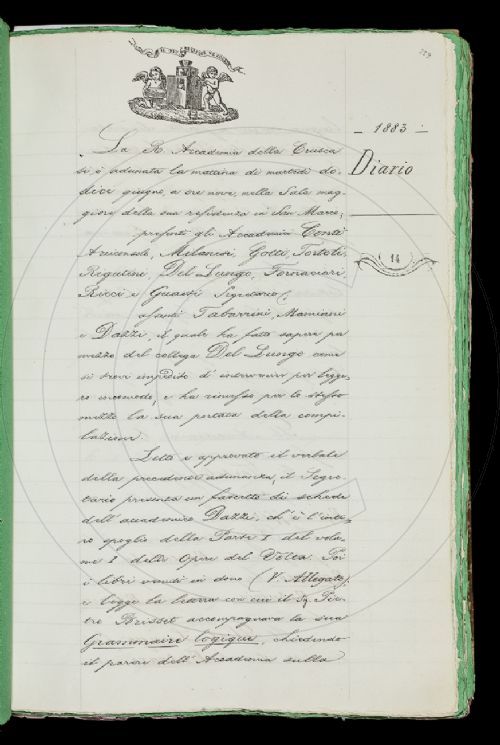 229
— 1883 —
Diario
14
La R. Accademia della Crusca
si è adunata la mattina di martedì do-
dici giugno, a ore nove, nella Sala mag-
giore della sua residenza in San Marco;
presenti gli Accademici Conti
Arciconsolo, Milanesi, Gotti, Tortoli,
Rigutini, Del Lungo, Fornaciari
Ricci e Guasti Segretario;
assenti Tabarrini, Mamiani
e Dazzi, il quale ha fatto sapere per
mezzo del collega Del Lungo come
si trovi impedito d'intervenire per legge-
ro incomodo, e ha rimesso per lo stesso
mezzo la sua portata della compi-
lazione.
Letto e approvato il verbale
della precedente adunanza, il Segre-
tario presenta un fascetto di schede
dell'accademico Dazzi, ch'è l'inte-
ro spoglio della Parte I del volu-
me I delle Opere del Volta. Poi
i libri venuti in dono (V. Allegato);
e legge la lettera con cui il Sig. Pie-
tro Brisset accompagnava la sua
Grammaire logique, chiedendo
il parere dell'Accademia sulla